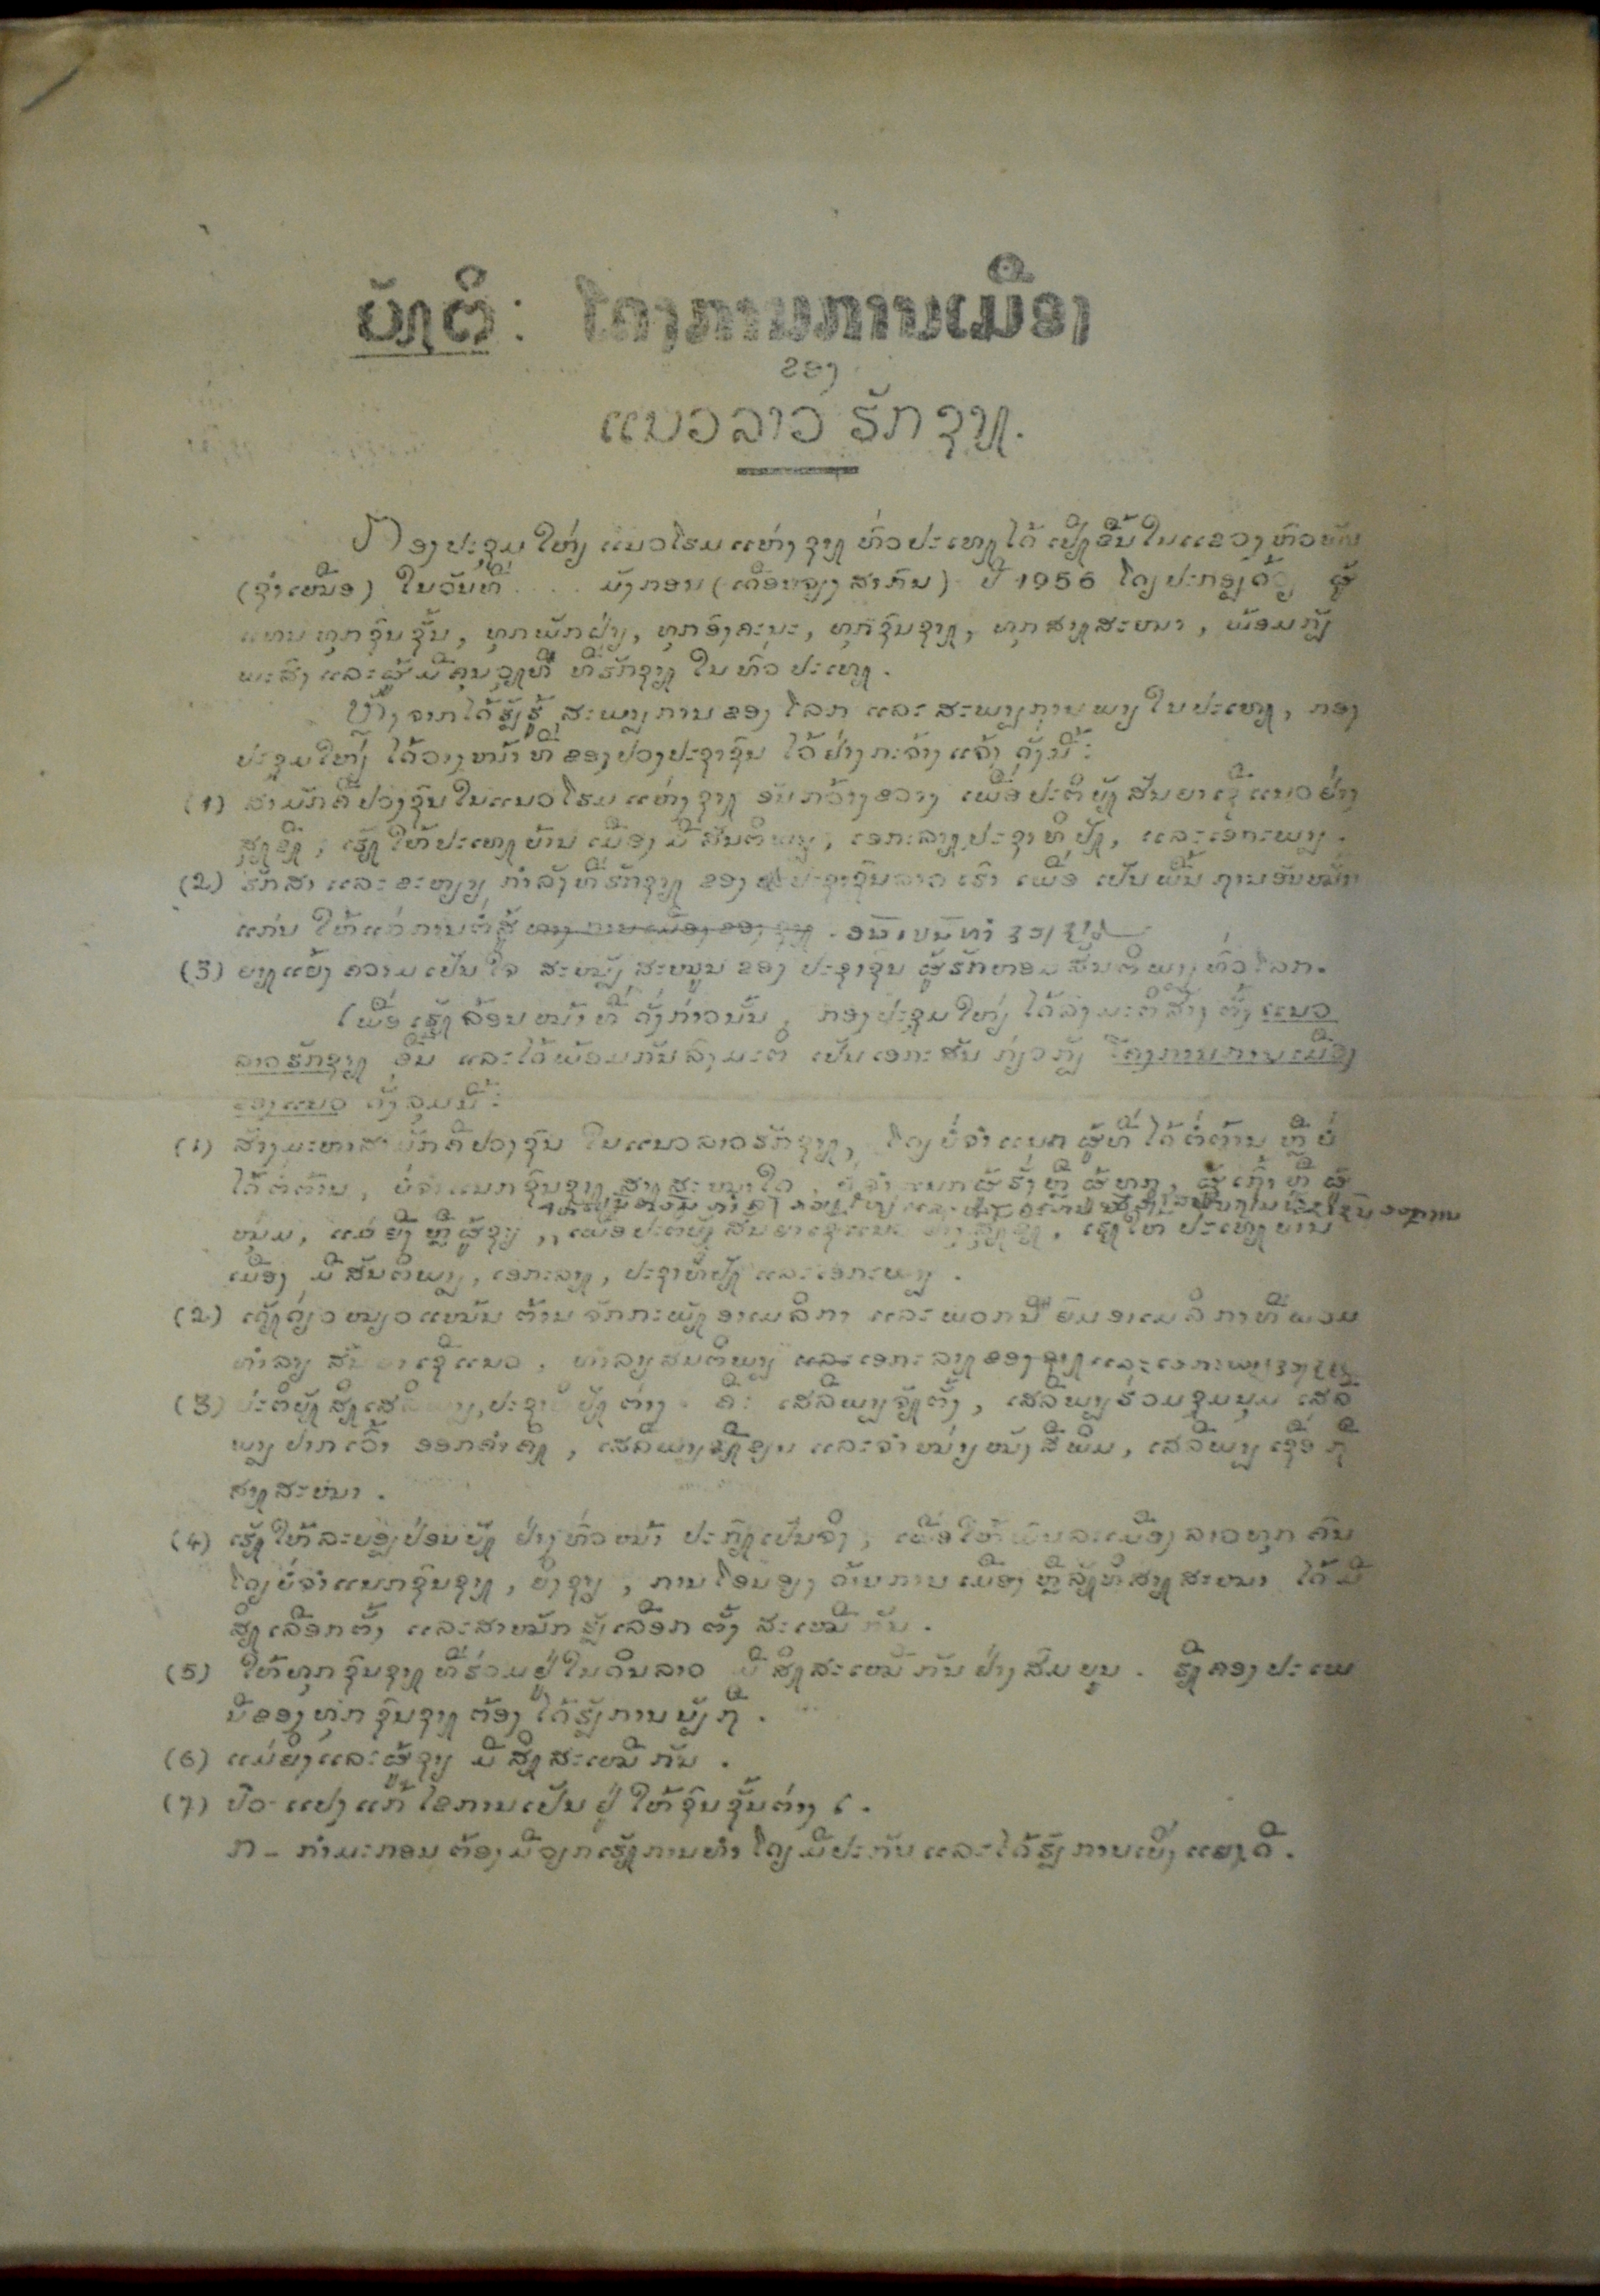 ບັຍຕິ: ໂຄງການການເມືອງ
ຂອງ
ແນວລາວ ຮັກຊາຕ.
ກອງປະຊຸມໃຫ່ຽ ແນວໂຮມແຫ່ງຊາຕ ທົ່ວປະເທດໄດ້ ເປີດຂື້ນໃນແຂວງຫົວພັນ
(ຊຳເໜືອ) ໃນວັນທີ່ .... ມັງກອນ (ເດືອນຈຽງສາກົນ) ປີ 1956 ໂດຽປະກອບດ້ວຽ ຜູ້
ແທນທຸກຊົນຊັ້ນ, ທຸກພັກຝ່າຽ, ທຸກອົງຄະນະ, ທຸກຊົນຊາດ, ທຸກສາດສະໜາ, ພ້ອມກັບ
ພະສົງ ແລະຜູ້ມີຄຸນວຸດທິ ທີ່ຮັກຊາດ ໃນທົ່ວປະເທດ.
ຫຼັງຈາກໄດ້ຮັບຮູ້ ສະພາບການຂອງໂລກ ແລະ ສະພາບການພາຽໃນປະເທດ, ກອງ
ປະຊຸມໃຫ່ຽ ໄດ້ວາງໜ້າທີ່ຂອງປວງປະຊາຊົນ ໄວ້ຢ່າງກະຈ່າງແຈ້ງ ດັ່ງນີ້:
(1) ສາມັກຄີປວງຊົນໃນແນວໂຮມແຫ່ງຊາດ ອັນກວ້າງຂວາງ ເພື່ອປະຕິບັດສັນຍາເຊີແນວຢ່າງ
ສຸດຂີດ, ເຮັດໃຫ້ປະເທດບ້ານເມືອງມີສັນຕິພາບ, ເອກະລາດ, ປະຊາທິປັດ, ແລະເອກະພາບ.
(2) ຮັກສາ ແລະຂະຫຽາຽ ກຳລັງທີ່ຮັກຊາດ ຂອງ ປະຊາຊົນລາວເຮົາ ເພື່ອ ເປັນພື້ນຖານອັນໝັ້ນ
ແກ່ນ ໃຫ້ແກ່ການຕໍ່ສູ້ ທາງການເມືອງຂອງຊາດ.
(3) ຍາດແຍ້ງ ຄວາມເປັນໃຈ ສະໜັບສະໜູນ ຂອງ ປະຊາຊົນ ຜູ້ຮັກຫອມສັນຕິພາບທົ່ວໂລກ.
ເພື່ອເຮັດລ້ອນໜ້າທີ່ ດັ່ງກ່າວນັ້ນ, ກອງປະຊຸມໃຫ່ຽ ໄດ້ລົງມະຕິສ້າງຕັ້ງ ແນວ
ລາວຮັກຊາດ ຂື້ນ ແລະໄດ້ພ້ອມກັນລົງມະຕິ ເປັນເອກະສັນ ກ່ຽວກັບ ໂຄງການການເມືອງ
ຂອງແນວ ດັ່ງລຸມນີ້:
(1) ສ້າງມະຫາສາມັກຄີປວງຊົນ ໃນແນວລາວຮັກຊາດ, ໂດຽບໍ່ຈຳແນກ ຜູ້ທີ່ໄດ້ຕໍ່ຕ້ານ ຫຼື ບໍ່
ໄດ້ຕໍ່ຕ້ານ, ບໍ່ຈຳແນກຊົນຊາດ ສາດສະໜາໃດ, ບໍ່ຈຳແນກຜູ້ຮັ່ງ ຫຼື ຜູ້ທຸກ, ຜູ້ເຖົ້າ ຫຼື ຜູ້
ໜຸ່ມ, ແມ່ຍິງ ຫຼື ຜູ້ຊາຽ, ເພື່ອປະຕິບັດສັນຍາເຊີແນວ ຢ່າງສຸດຂີດ, ເຮັດໃຫ້ ປະເທດບ້ານ
ເມືອງ ມີສັນຕິພາບ, ເອກະລາດ, ປະຊາທິປັດ ແລະເອກະພາບ.
(2) ເດັດດ່ຽວໜຽວແໜ້ນ ຕ້ານຈັກກະພັດອາເມລິກາ ແລະພວກນິຍົມອາເມລິກາທີ່ພວມ
ທຳລາຽ ສັນຍາເຊີແນວ, ທຳລາຽສັນຕິພາບ ແລະເອກະລາດຂອງຊາດ
(3) ປະຕິບັດສິດເສລີພາບ, ປະຊາທິປັດຕ່າງໆ ຄື: ເສລີພາບຈັດຕັ້ງ, ເສລີພາບຮ່ວມຊຸມນຸມ ເສລີ
ພາບປາກເວົ້າ ອອກຄຳຄິດ, ເສລີພາບຂີດຂຽນ ແລະຈຳໜ່າຽໜັງສືພິມ, ເສລີພາບເຊື່ອຖື
ສາດສະໜາ.
(4) ເຮັດໃຫ້ລະບອບປ່ອນບັດ ຢ່າງທົ່ວໜ້າ ປະກົດເປັນຈິງ, ເພື່ອໃຫ້ພົນລະເມືອງລາວທຸກຄົນ
ໂດຽບໍ່ຈຳແນກຊົນຊາດ, ຍິງຊາຽ, ການໂອນອຽງ ດ້ານການເມືອງ ຫຼືລັດທິສາດສະໜາ ໄດ້ມີ
ສິດເລືອກຕັ້ງ ແລະສາໝັກຮັບເລືອກຕັ້ງ ສະເໝີກັນ.
(5) ໃຫ້ທຸກຊົນຊາດທີ່ຮ່ວມຢູ່ໃນດິນລາວ ມີສິດສະເໝີກັນຢ່າງສົມບູນ. ຮີດຄອງປະເພ
ນີຂອງທຸກຊົນຊາດຕ້ອງໄດ້ຮັບການນັບຖື.
(6) ແມ່ຍິງແລະຜູ້ຊາຽ ມີສິດສະເໝີກັນ.
(7) ປົວແປງແກ້ໄຂການເປັນຢູ່ໃຫ້ຊົນຊັ້ນຕ່າງໆ.
ກ- ກຳມະກອນຕ້ອງມີວຽກເຮັດການທຳ ໂດຽມີປະກັນ ແລະໄດ້ຮັບການເບິ່ງແຍງດີ.